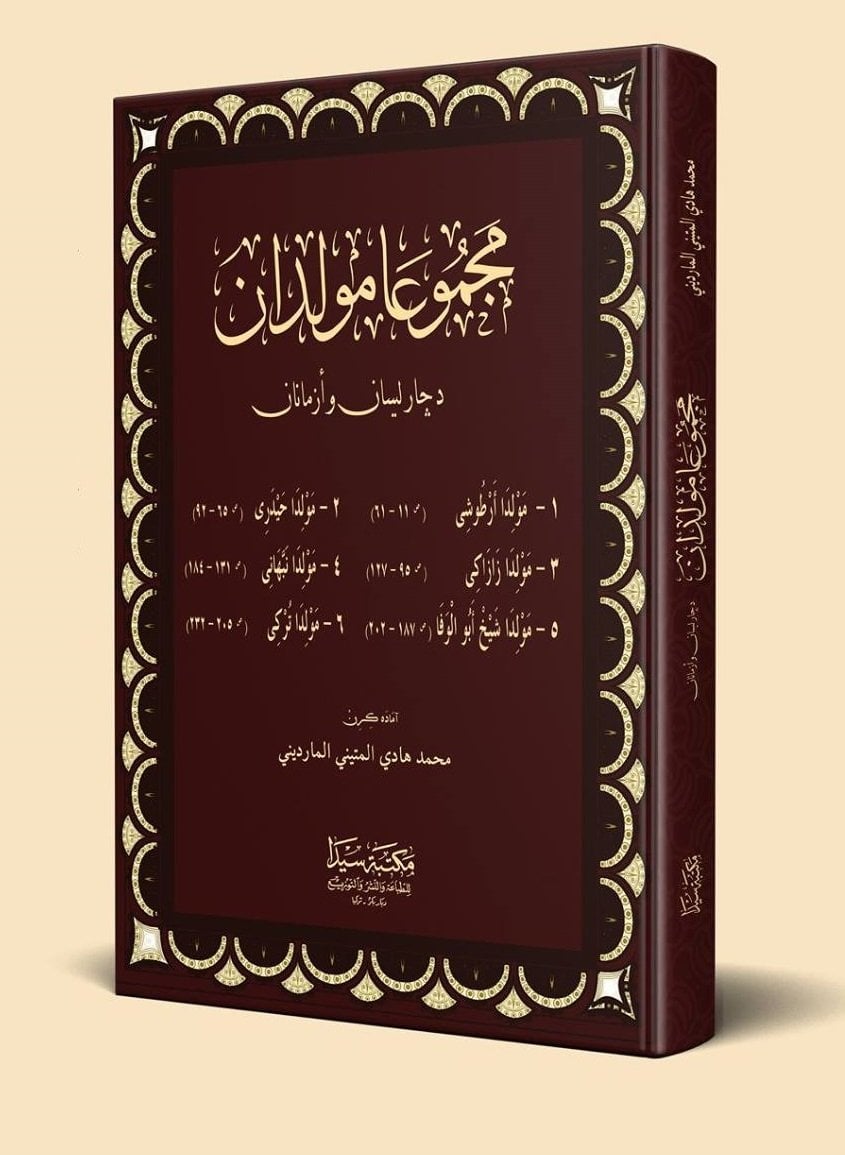 مَجْمُوعَا مولدان
د چار لسان و أزمانان
١ - مَوْلِدَا أَرْطُوشِى (صـ ١١ - ٦١) ٢ - مَوْلِدَا حَيْدَرِى (صـ ٦٥ - ٩٢)
٣ - مَوْلِدَا زَازَاكِى (صـ ٩٥ - ١٢٧) ٤ - مَوْلِدَا نَبْهَانِى (صـ ١٣١ - ١٨٤)
٥ - مَوْلِدَا شَيْخْ أَبُو الْوَفَا (صـ ١٨٧ - ٢٠٢) ٦ - مَوْلِدَا تُرْكِى (صـ ٢٠٥ - ٢٣٢)
آمَادَه كِرِنْ
محمد هادي المتيني المارديني
مكتبة سيدا
للطباعة والنشر والتوزيع
ديار بكر - تركيا
محمد هادي المتيني المارديني
مجموعا مولدان
د چار لسان و أزمانان
مكتبة سيدا